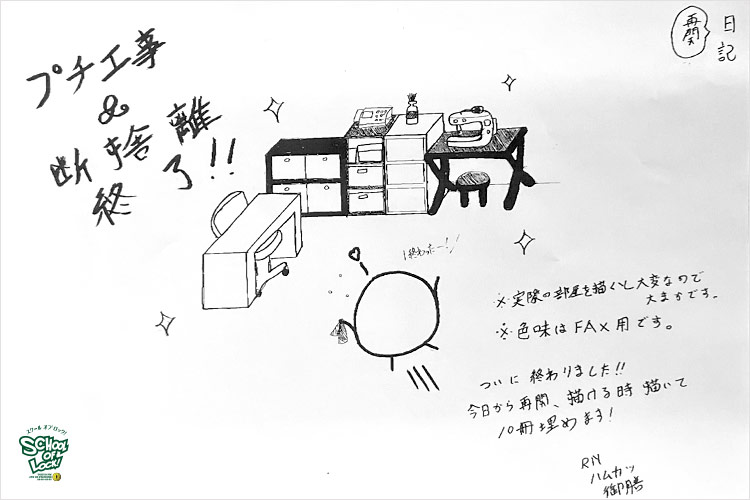 日記
再開
プチ工事
&
断捨離
終了!!
終わったー!!
※実際の部屋を描くいし大変なので
大まかです。
※色味はFAX用です。
ついに終わりました!!
今日から再開、描ける時描いて
10冊埋めます!
RN
ハムカツ
御膳
スクール オブ ロック!
SCHOOL
OF
LOCK!